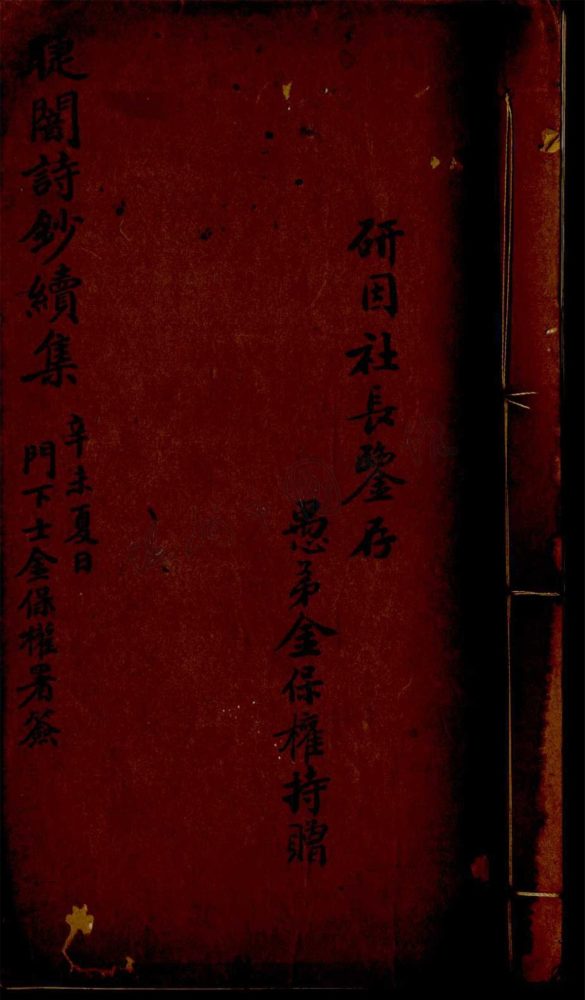 研因社長鑒存
愚弟金保權持贈
聽闇詩鈔續集
辛未夏日
門下士金保權署簽